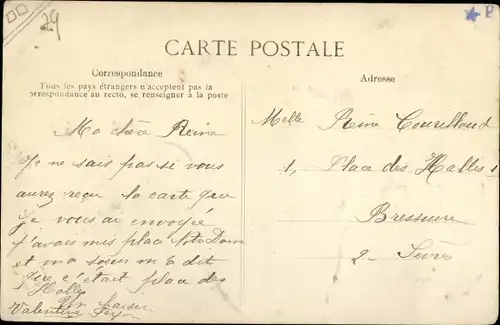 79
P
CARTE POSTALE
Correspondance
Tous les pays étrangers n'acceptent pas la
correspondance au recto, se renseigner à la poste
Adresse
Ma chère Reine
Je ne sais pas si vous
aurez reçu la carte que
Je vous ai envoyée
j'avais mis place Notr Dam
et ma soeur m'a dit
que c'était place des
Halles
Un baiser
Valentine
Melle Reine
1, Place des Halles 1
Bressuire
2 - Sèvres